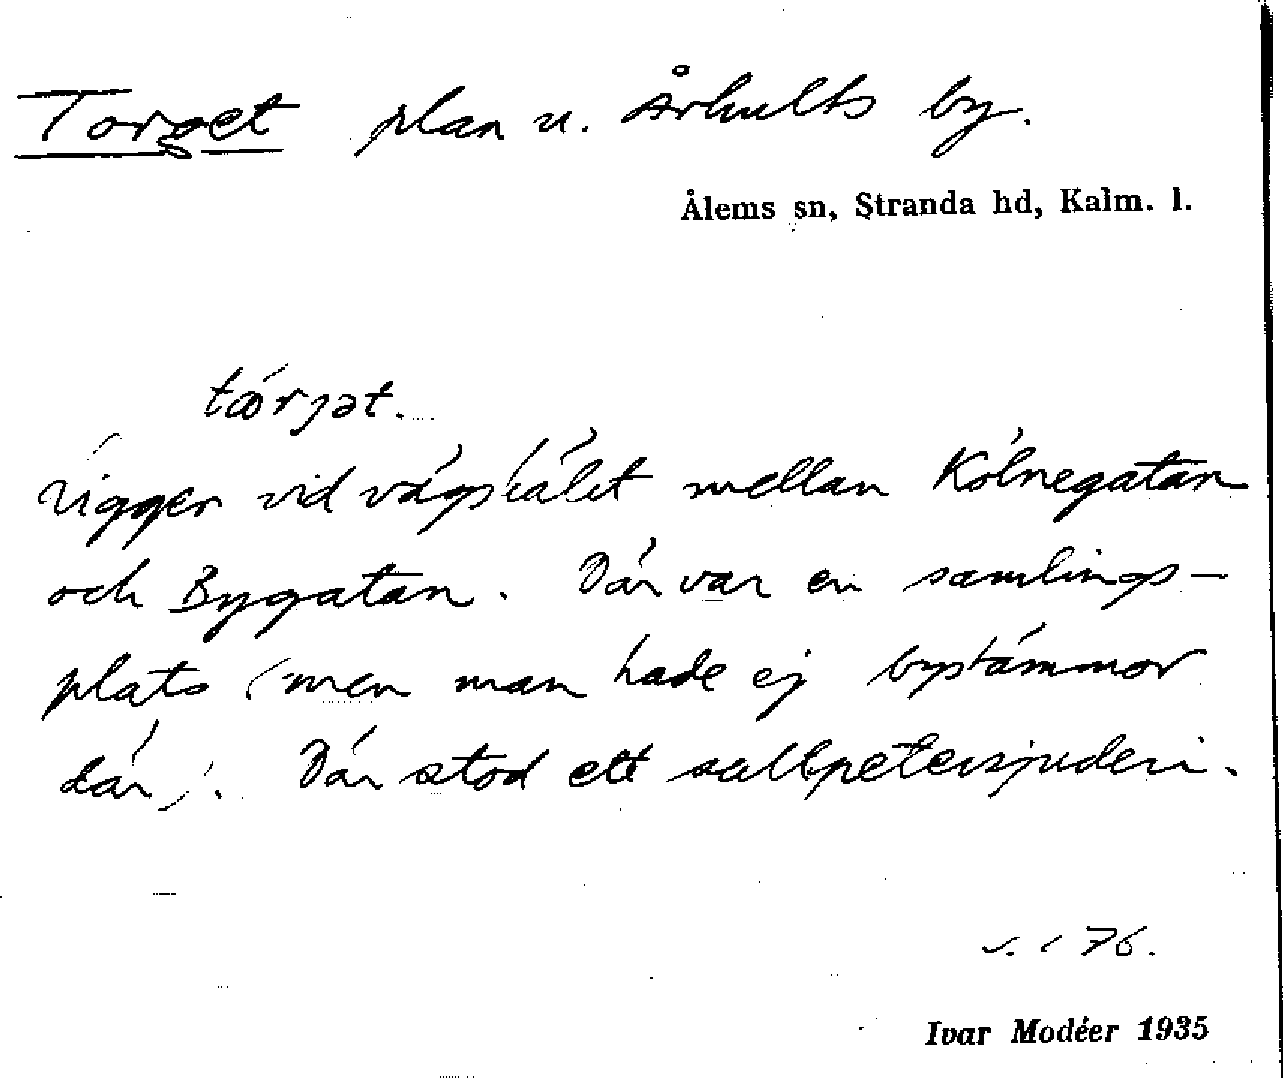 Torget plan u. Århults by.
Ålems sn, Stranda hd, Kalm. l.
tǿrjət.
Ligger vid vägskälet mellan Kölnegatan
och Bygatan. Där var en samlings-
plats (men man hade ej bystämmor
där). Där stod ett sallpetersjuderi.
76.
Ivar Modéer 1935